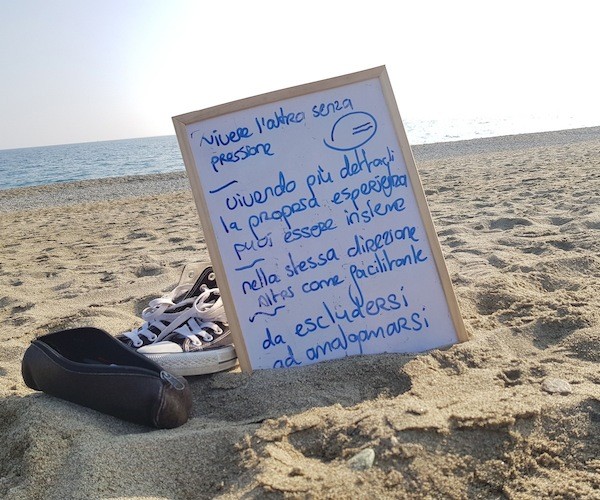 vivere l'altro senza
pressione
=
vivendo più dettagli
la propria esperienza
puoi essere insieme
nella stessa direzione
Altro come facilitante
da escludersi
ad amalgamarsi